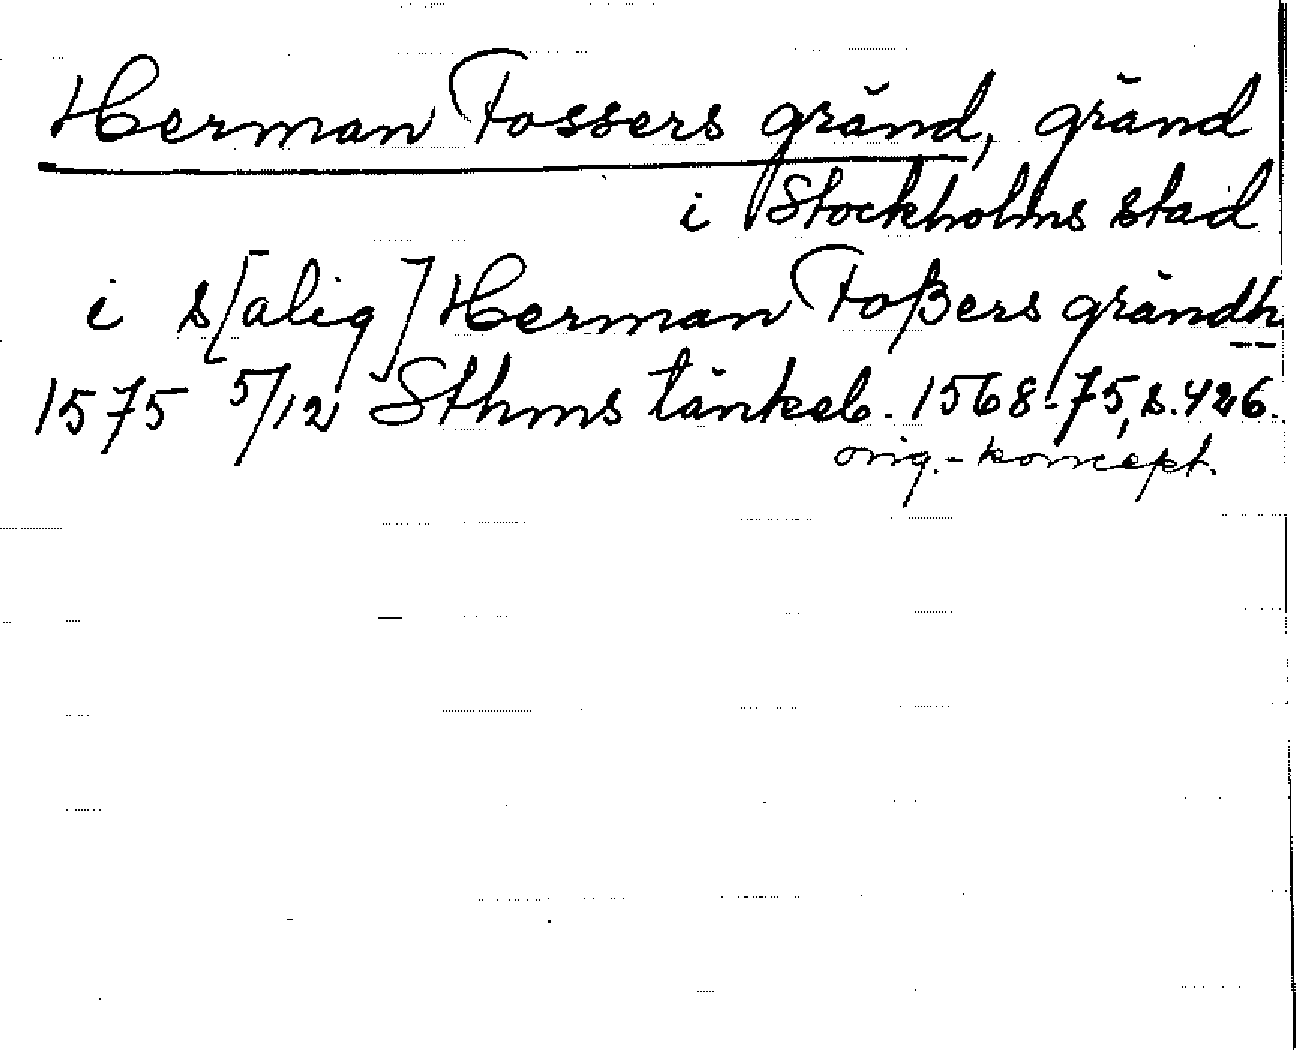 Herman Fossers gränd, gränd
i Stockholms stad
i s[alig] Herman Foßers grändh
1575 5/12 Sthms tänkeb. 1568-75, s. 426.
orig.-koncept.